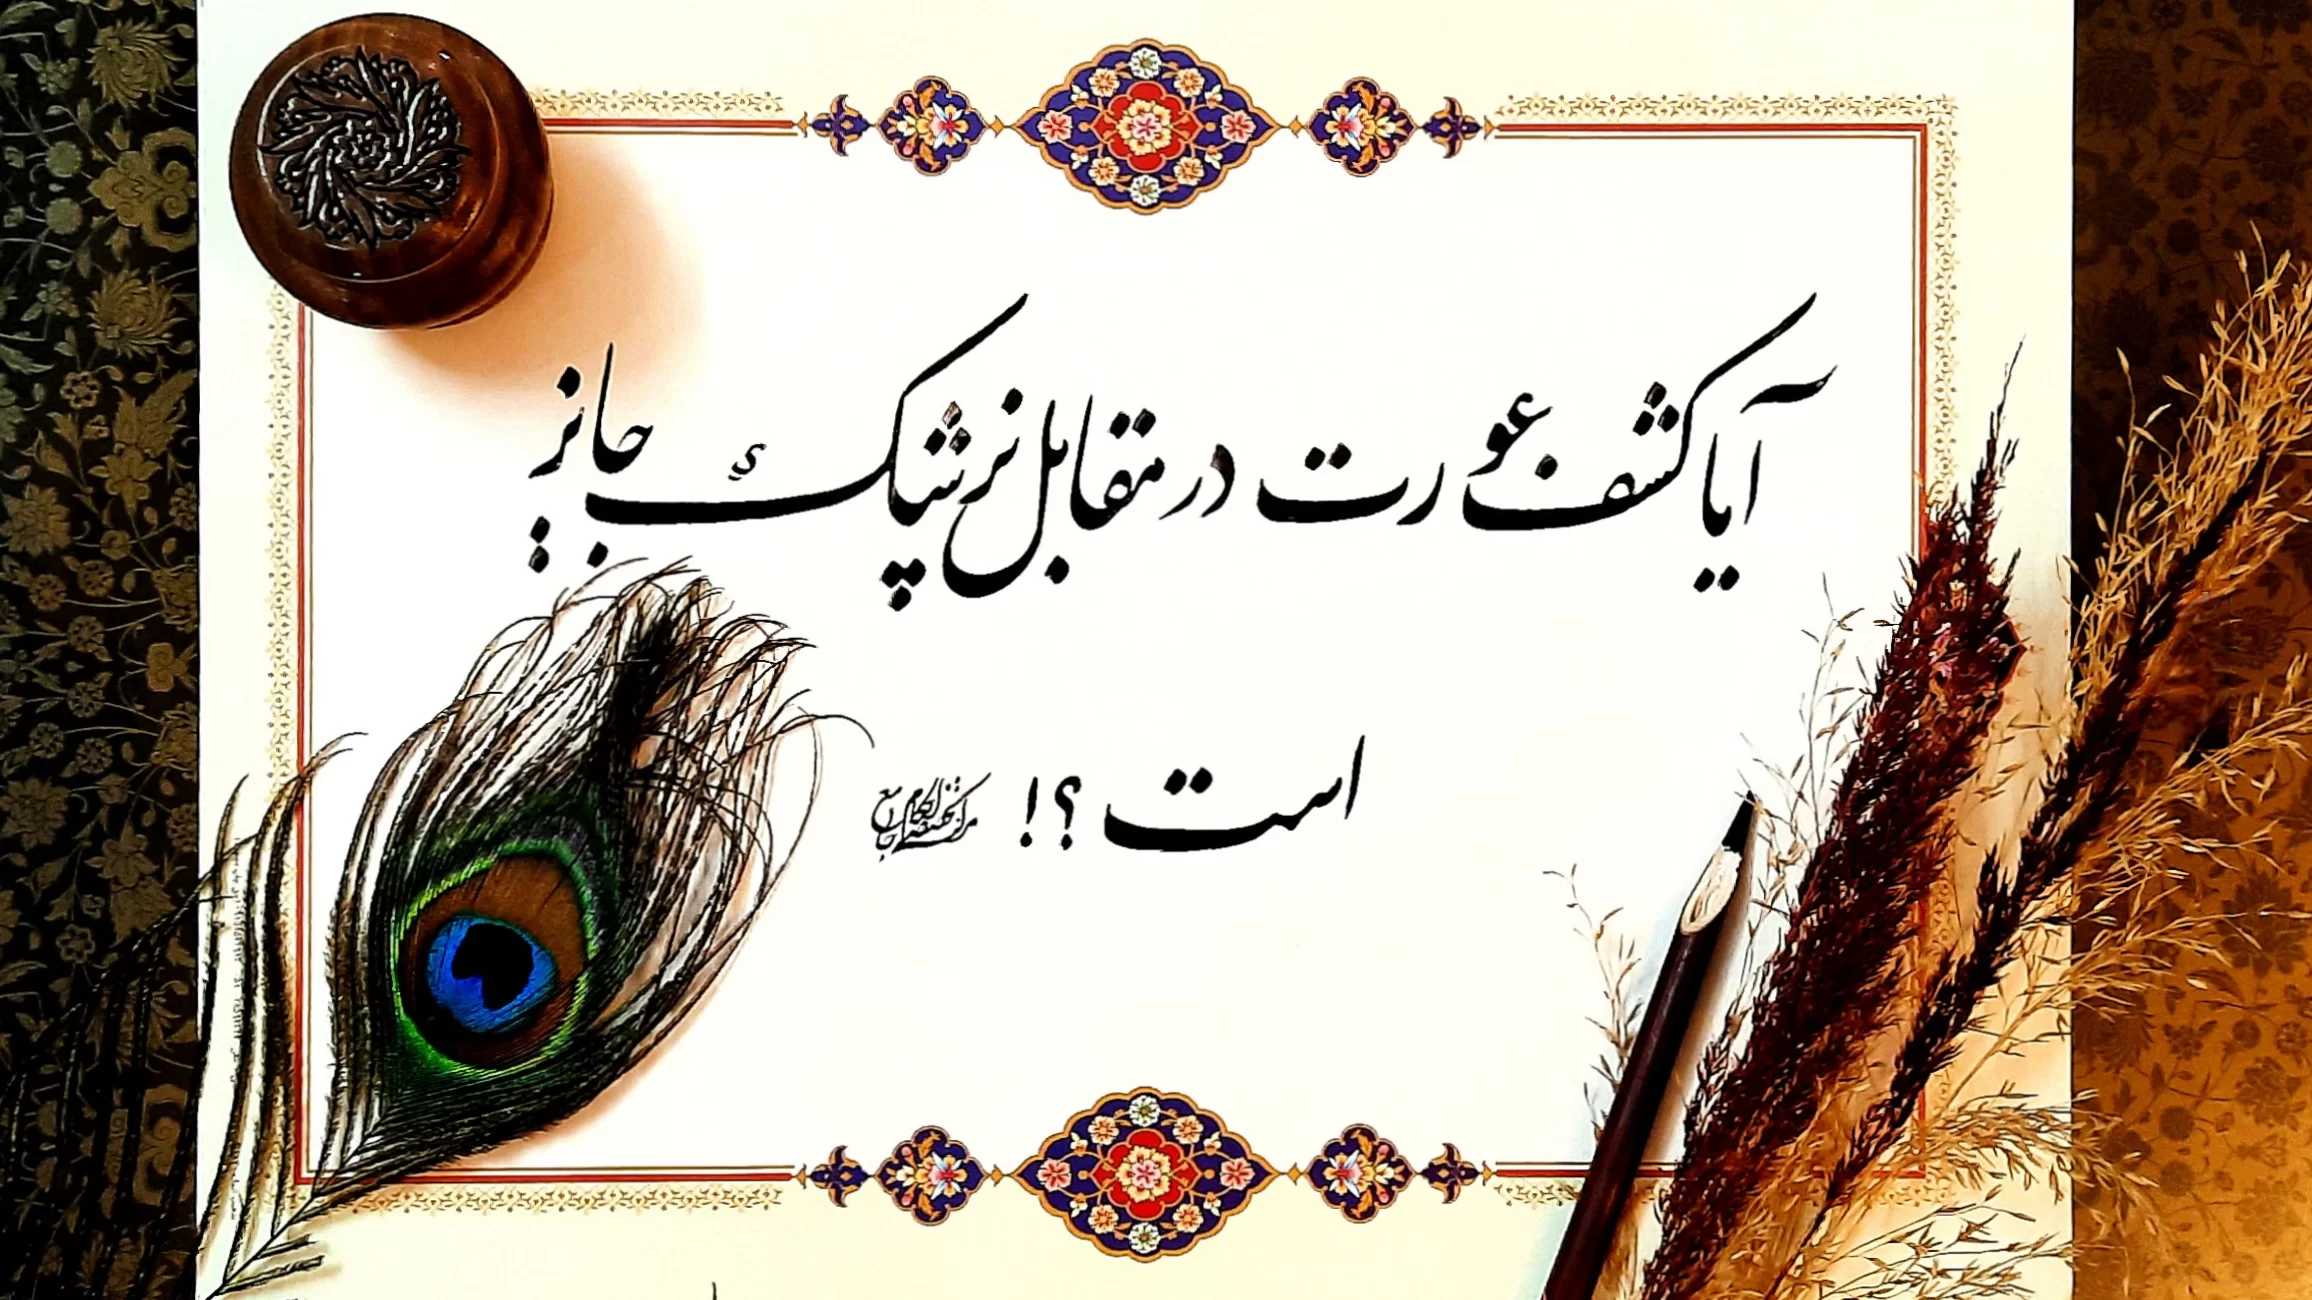 آیا کشف عورت در مقابل پزشک جایز
است ؟!